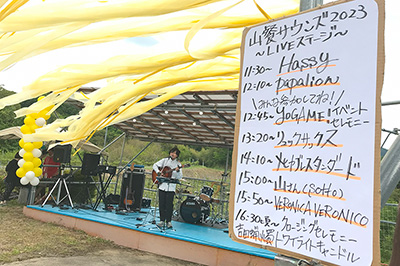 山賀サウンズ2023
〜LIVEステージ〜
11:30〜 Hassy
12:10〜 papalion
みんな参加してね!
12:45〜 GAME!イベント
セレモニー
13:20〜 リュックサックス
14:10〜 スタンダード
15:00〜 山さん(SOHO)
15:50〜 VERONICA VERONICO
16:30頃〜 クロージングセレモニー
トワイライトキャンドル